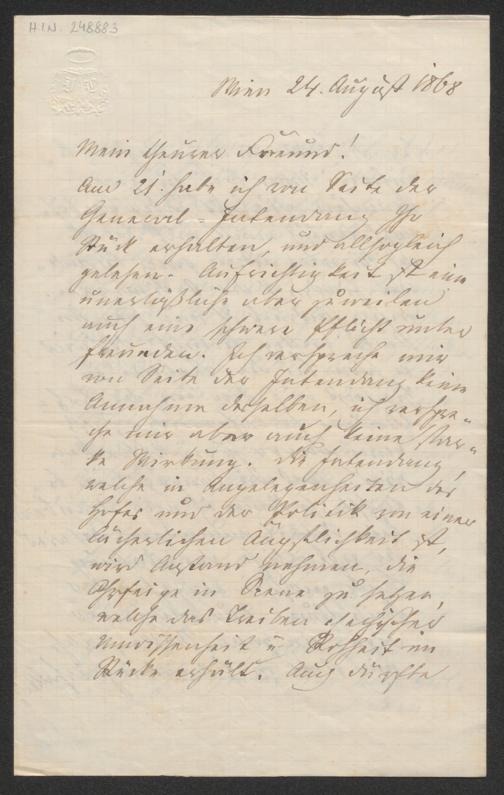 H.I.N. 248883
Wien 24. August 1868
Mein theurer Freund!
Am 21. habe ich von Seite der
General-Intendanz Ihr
Stück erhalten, und allsogleich
gelesen. Aufrichtigkeit ist eine
unerläßliche aber zuweilen
auch eine schwere Pflicht unter
Freunden. Ich verspreche mir
von Seite der Intendanz keine
Annahme desselben, ich verspre-
che mir aber auch keine star-
ke Wirkung. Die Intendanz,
welche in Angelegenheiten des
Hofes und der Politik von einer
lächerlichen Ängstlichkeit ist,
wird Anstand nehmen, die
Ohrfeige in Scene zu setzen,
welche das Treiben
Unwissenheit u. Rohheit im
Stücke erhält. Auch dürfte